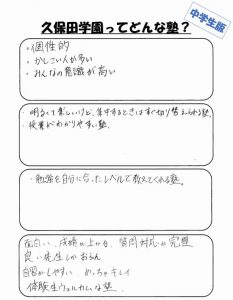 久保田学園ってどんな塾？
中学生版
・個性的
・かしこい人が多い
・みんなの意識が高い
・明るくて楽しいけど、集中するときはすぐ切り替えられる塾。
・授業がわかりやすい塾。
・勉強を自分に合ったレベルで教えてくれる塾。
面白い、成績が上がる、質問対応が完璧
良い先生しかおらん
自習がしやすい めっちゃキレイ
体験生ウェルカムな塾。